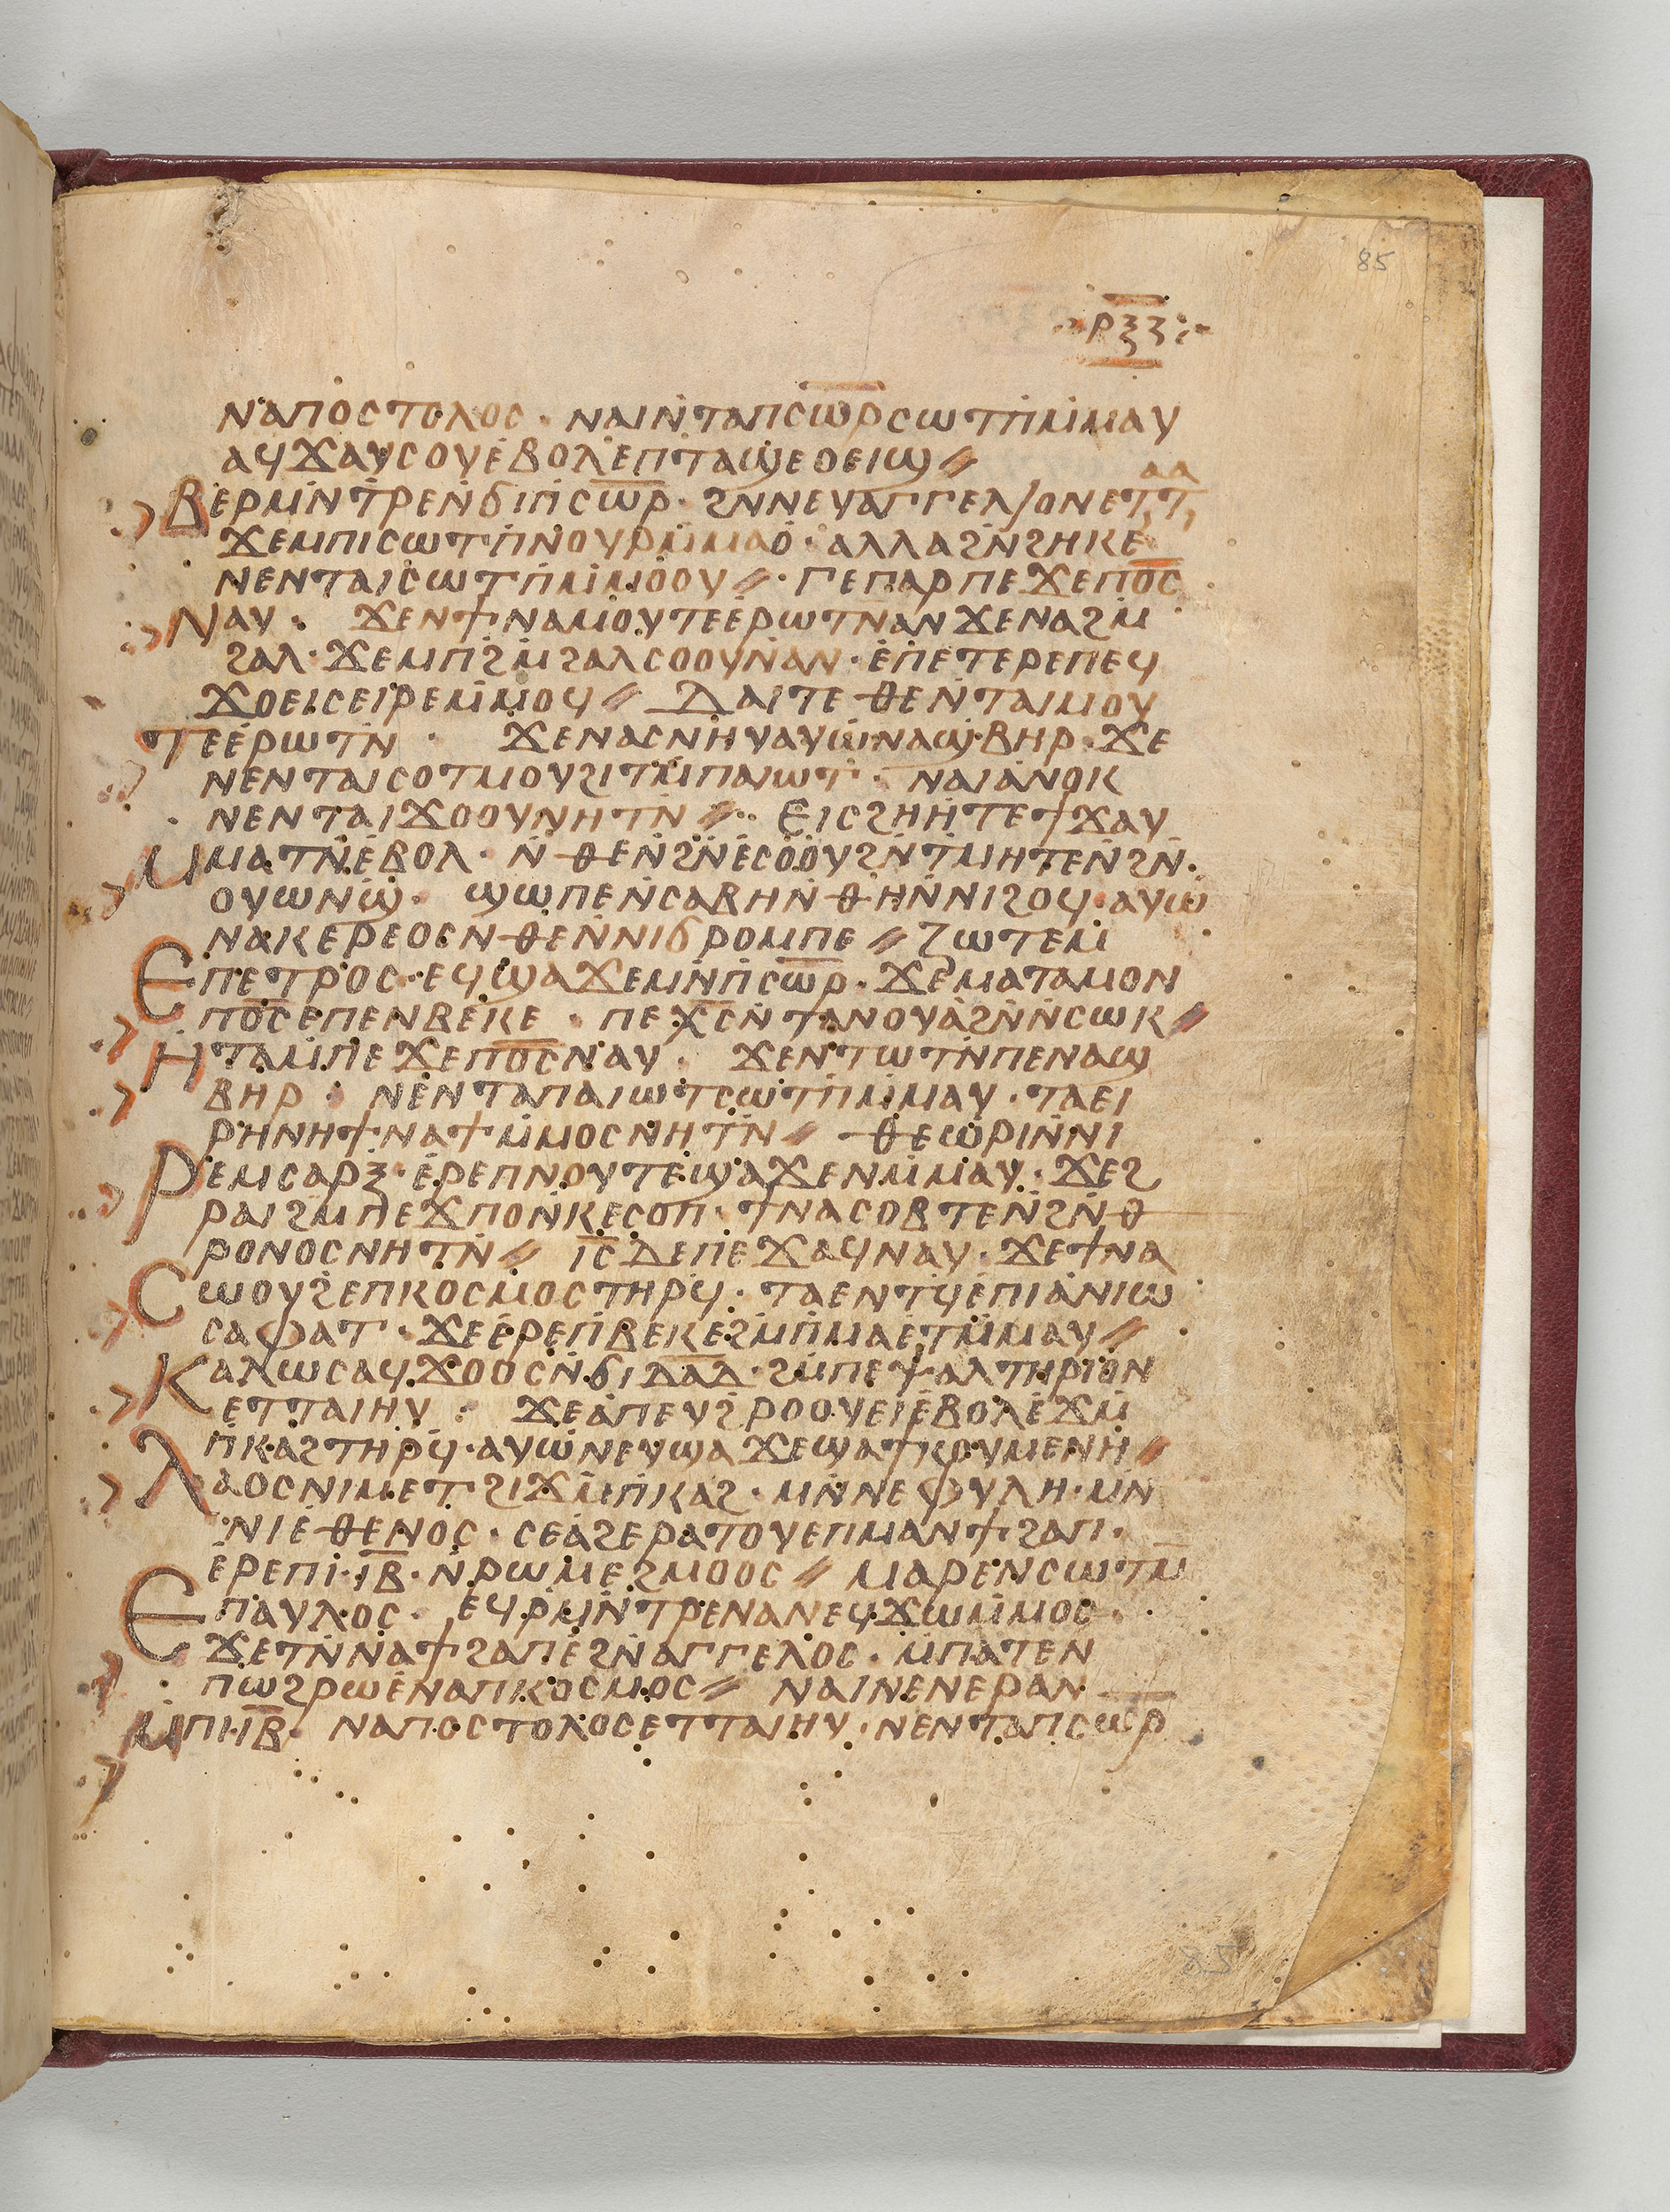 85
ⲣⲝⲍ
ⲛⲁⲡⲟⲥⲧⲟⲗⲟⲥ · ⲛⲁⲓⲛ̇ⲧⲁⲡⲥⲱ̅ⲣ̅ⲥⲱⲧⲡ̇ⲙ̇ⲙⲁⲩ
ⲁϥϫⲁⲩⲥⲟⲩⲉ̇ⲃⲟⲗⲉ̇ⲡⲧⲁϣⲉⲟⲉⲓϣ⸗
Ⲃⲉⲣⲙⲛ̇ⲧⲣⲉⲛ̇ϭⲓⲡ̇ⲥⲱ̅ⲣ̅ · ϩⲛⲛⲉⲩⲁⲅⲅⲉⲗⲓⲟⲛⲉⲧⲧ
ϫⲉⲙⲡⲓⲥⲱⲧⲡ̇ⲛ̇ⲟⲩⲣⲙ̇ⲙⲁⲟ̇ · ⲁⲗⲗⲁϩⲛ̇ϩⲏⲕⲉ
ⲛⲉⲛⲧⲁⲓⲥⲱⲧⲡ̇ⲙ̇ⲙⲟⲟⲩ⸗ · ⲅⲉⲡⲁⲣⲡⲉϫⲉⲡⲟ̅ⲥ̅
Ⲛⲁⲩ · ϫⲉⲛϯⲛⲁⲙⲟⲩⲧⲉⲉ̇ⲣⲱⲧⲛ̇ⲁⲛϫⲉⲛⲁϩⲙ̇
ϩⲁⲗ · ϫⲉⲙⲡϩ̇ⲙ̇ϩⲁⲗⲥⲟⲟⲩⲛ̇ⲁⲛ · ⲉ̇ⲡⲉⲧⲉⲣⲉⲡⲉϥ
ϫⲟⲉⲓⲥⲉⲓⲣⲉⲙ̇ⲙⲟϥ⸗ ⲇⲁⲓⲧⲉⲑⲉⲛ̇ⲧⲁⲓⲙⲟⲩ
Ⲧⲉⲉ̇ⲣⲱⲧⲛ̇ · ϫⲉⲛⲁⲥⲛⲏⲩⲁⲩⲱ̇ⲛⲁϣ̇ⲃⲏⲣ · ϫⲉ
ⲛⲉⲛⲧⲁⲓⲥⲟⲧⲙⲟⲩϩⲓⲧⲙ̇ⲡⲁⲓⲱⲧ · ⲛⲁⲓⲁ̇ⲛⲟⲕ
ⲛⲉⲛⲧⲁⲓϫⲟⲟⲩⲛⲏⲧⲛ̇⸗ · ⲉⲓⲥϩⲏⲏ̇ⲧⲉϯϫⲁⲩ
Ⲙⲙⲁⲧⲛ̇ⲉ̇ⲃⲟⲗ · ⲛ̇ⲑⲉⲛ̇ϩⲛ̇ⲉ̇ⲥⲟ̇ⲟ̇ⲩϩⲛ̇ⲧⲙⲏⲧⲉⲛ̇ϩⲛ̇
ⲟⲩⲱⲛϣ̇ · ϣⲱⲡⲉⲛ̇ⲥⲁⲃⲏⲛ̇ⲑ̇ⲏⲛ̇ⲛⲓϩⲟϥ · ⲁⲩⲱ̇
ⲛⲁⲕⲉⲣⲉⲟⲥⲛ̇ⲑⲉⲛ̇ⲛⲓϭⲣⲟⲙⲡⲉ⸗ ⲍⲱⲧⲉⲙ̇
Ⲉⲡⲉⲧⲣⲟⲥ · ⲉϥϣⲁϫⲉⲙⲛ̇ⲡ̇ⲥⲱ̅ⲣ̅ · ϫⲉⲙⲁⲧⲁⲙⲟⲛ
ⲡⲟ̅ⲥ̅ⲉⲡⲉⲛⲃⲉⲕⲉ · ⲡⲉⲭ̅ⲥ̅ⲛ̇ⲧⲁⲛⲟⲩⲁ̇ϩⲛ̇ⲛ̇ⲥⲱⲕ⸗
Ⲏⲧⲁⲙ̇ⲡⲉϫⲉⲡⲟ̅ⲥ̅ⲛⲁⲩ · ϫⲉⲛⲧⲱⲧⲛ̇ⲡⲉⲛⲁϣ
ⲃⲏⲣ · ⲛⲉ̇ⲛⲧⲁⲡⲁⲓⲱⲧⲥⲱⲧⲡ̇ⲙ̇ⲙⲁⲩ · ⲧⲁⲉⲓ
ⲣⲏⲛⲏϯⲛⲁϯⲙ̇ⲙⲟⲥⲛⲏⲧⲛ̇⸗ ⲑⲉⲱⲣⲓⲛ̇ⲛⲓ
Ⲣⲉⲙⲥⲁⲣⲝ · ⲉ̇ⲣⲉⲡⲛⲟⲩⲧⲉϣⲁϫⲉⲛⲙ̇ⲙⲁⲩ · ϫⲉϩ
ⲣⲁⲓϩⲙ̇ⲡⲉϫⲡⲟⲛ̇ⲕⲉⲥⲟⲡ · ϯⲛⲁⲥⲟⲃⲧⲉⲛ̇ϩⲛ̇ⲑ
ⲣⲟⲛⲟⲥⲛⲏⲧⲛ̇⸗ ⲓ̅ⲥ̅ⲇⲉⲡⲉϫⲁϥⲛⲁⲩ · ϫⲉϯⲛⲁ
Ⲥⲱⲟⲩϩ̇ⲉⲡⲕⲟⲥⲙⲟⲥⲧⲏⲣϥ̇ · ⲧⲁⲉⲛⲧϥ̇ⲉⲡⲓⲁ̇ⲛⲓⲱ
ⲥⲁⲫⲁⲧ · ϫⲉⲉ̇ⲣⲉⲡ̇ⲃⲉⲕⲉϩⲙ̇ⲡ̇ⲙⲁⲉⲧⲙ̇ⲙⲁⲩ⸗
Ⲕⲁⲗⲱⲥⲁϥϫⲟⲟⲥⲛ̇ϭⲓⲇ̅ⲁ̅ⲇ̅ · ϩⲙ̇ⲡⲉⲯⲁⲗⲧⲏⲣⲓⲟⲛ
ⲉⲧⲧⲁⲓⲏⲩ · ϫⲉⲁ̇ⲡⲉⲩϩⲣⲟⲟⲩⲉⲓⲉ̇ⲃⲟⲗⲉ̇ϫⲙ̇
ⲡⲕⲁϩⲧⲏⲣϥ̇ · ⲁⲩⲱ̇ⲛⲉⲩϣⲁϫⲉϣⲁϯⲕⲟⲩⲙⲉⲛⲏ̇⸗
Ⲗⲁⲟⲥⲛⲓⲙⲉⲧϩⲓϫⲙ̇ⲡ̇ⲕⲁϩ · ⲙⲛ̇ⲛⲉⲫⲩⲗⲏ · ⲙⲛ̇
ⲛⲓⲉ̇ⲑⲉⲛⲟⲥ · ⲥⲉⲁ̇ϩⲉⲣⲁⲧⲟⲩⲉⲡⲙⲁⲛϯϩⲁⲡ ·
ⲉ̇ⲣⲉⲡⲓ · ⲓ̅ⲃ̅ · ⲛ̇ⲣⲱⲙⲉϩⲙⲟⲟⲥ⸗ ⲙⲁⲣⲉⲛⲥⲱⲧⲙ̅
Ⲉⲡⲁⲩⲗⲟⲥ · ⲉϥⲣ̇ⲙⲛ̇ⲧⲣⲉⲛⲁⲛⲉϥϫⲱⲙ̇ⲙⲟⲥ
ϫⲉⲧⲛ̇ⲛⲁϯϩⲁⲡⲉ̇ϩⲛ̇ⲁⲅⲅⲉⲗⲟⲥ · ⲙ̇ⲡⲁⲧⲉⲛ
ⲡⲱϩⲣⲱⲉ̇ⲛⲁⲡⲕⲟⲥⲙⲟⲥ⸗ ⲛⲁⲓⲛⲉⲛⲉⲣⲁⲛ
Ⲙ̇ⲡⲓ · ⲓ̅ⲃ̅ · ⲛⲁⲡⲟⲥⲧⲟⲗⲟⲥⲉⲧⲧⲁⲓⲏⲩ · ⲛⲉⲛⲧⲁⲡⲥⲱ̅ⲣ̅